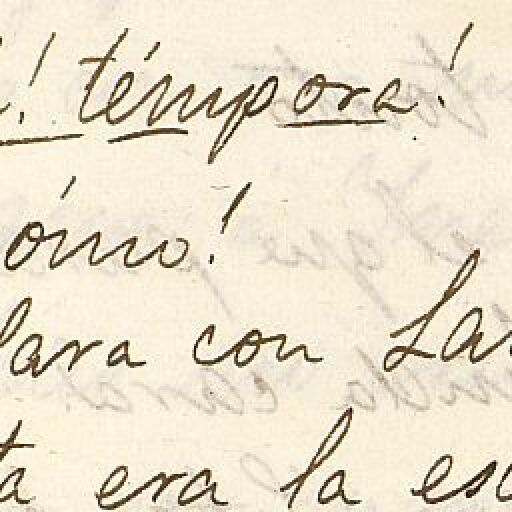 ! témpora!
ómo!
lara con La
ta era la es